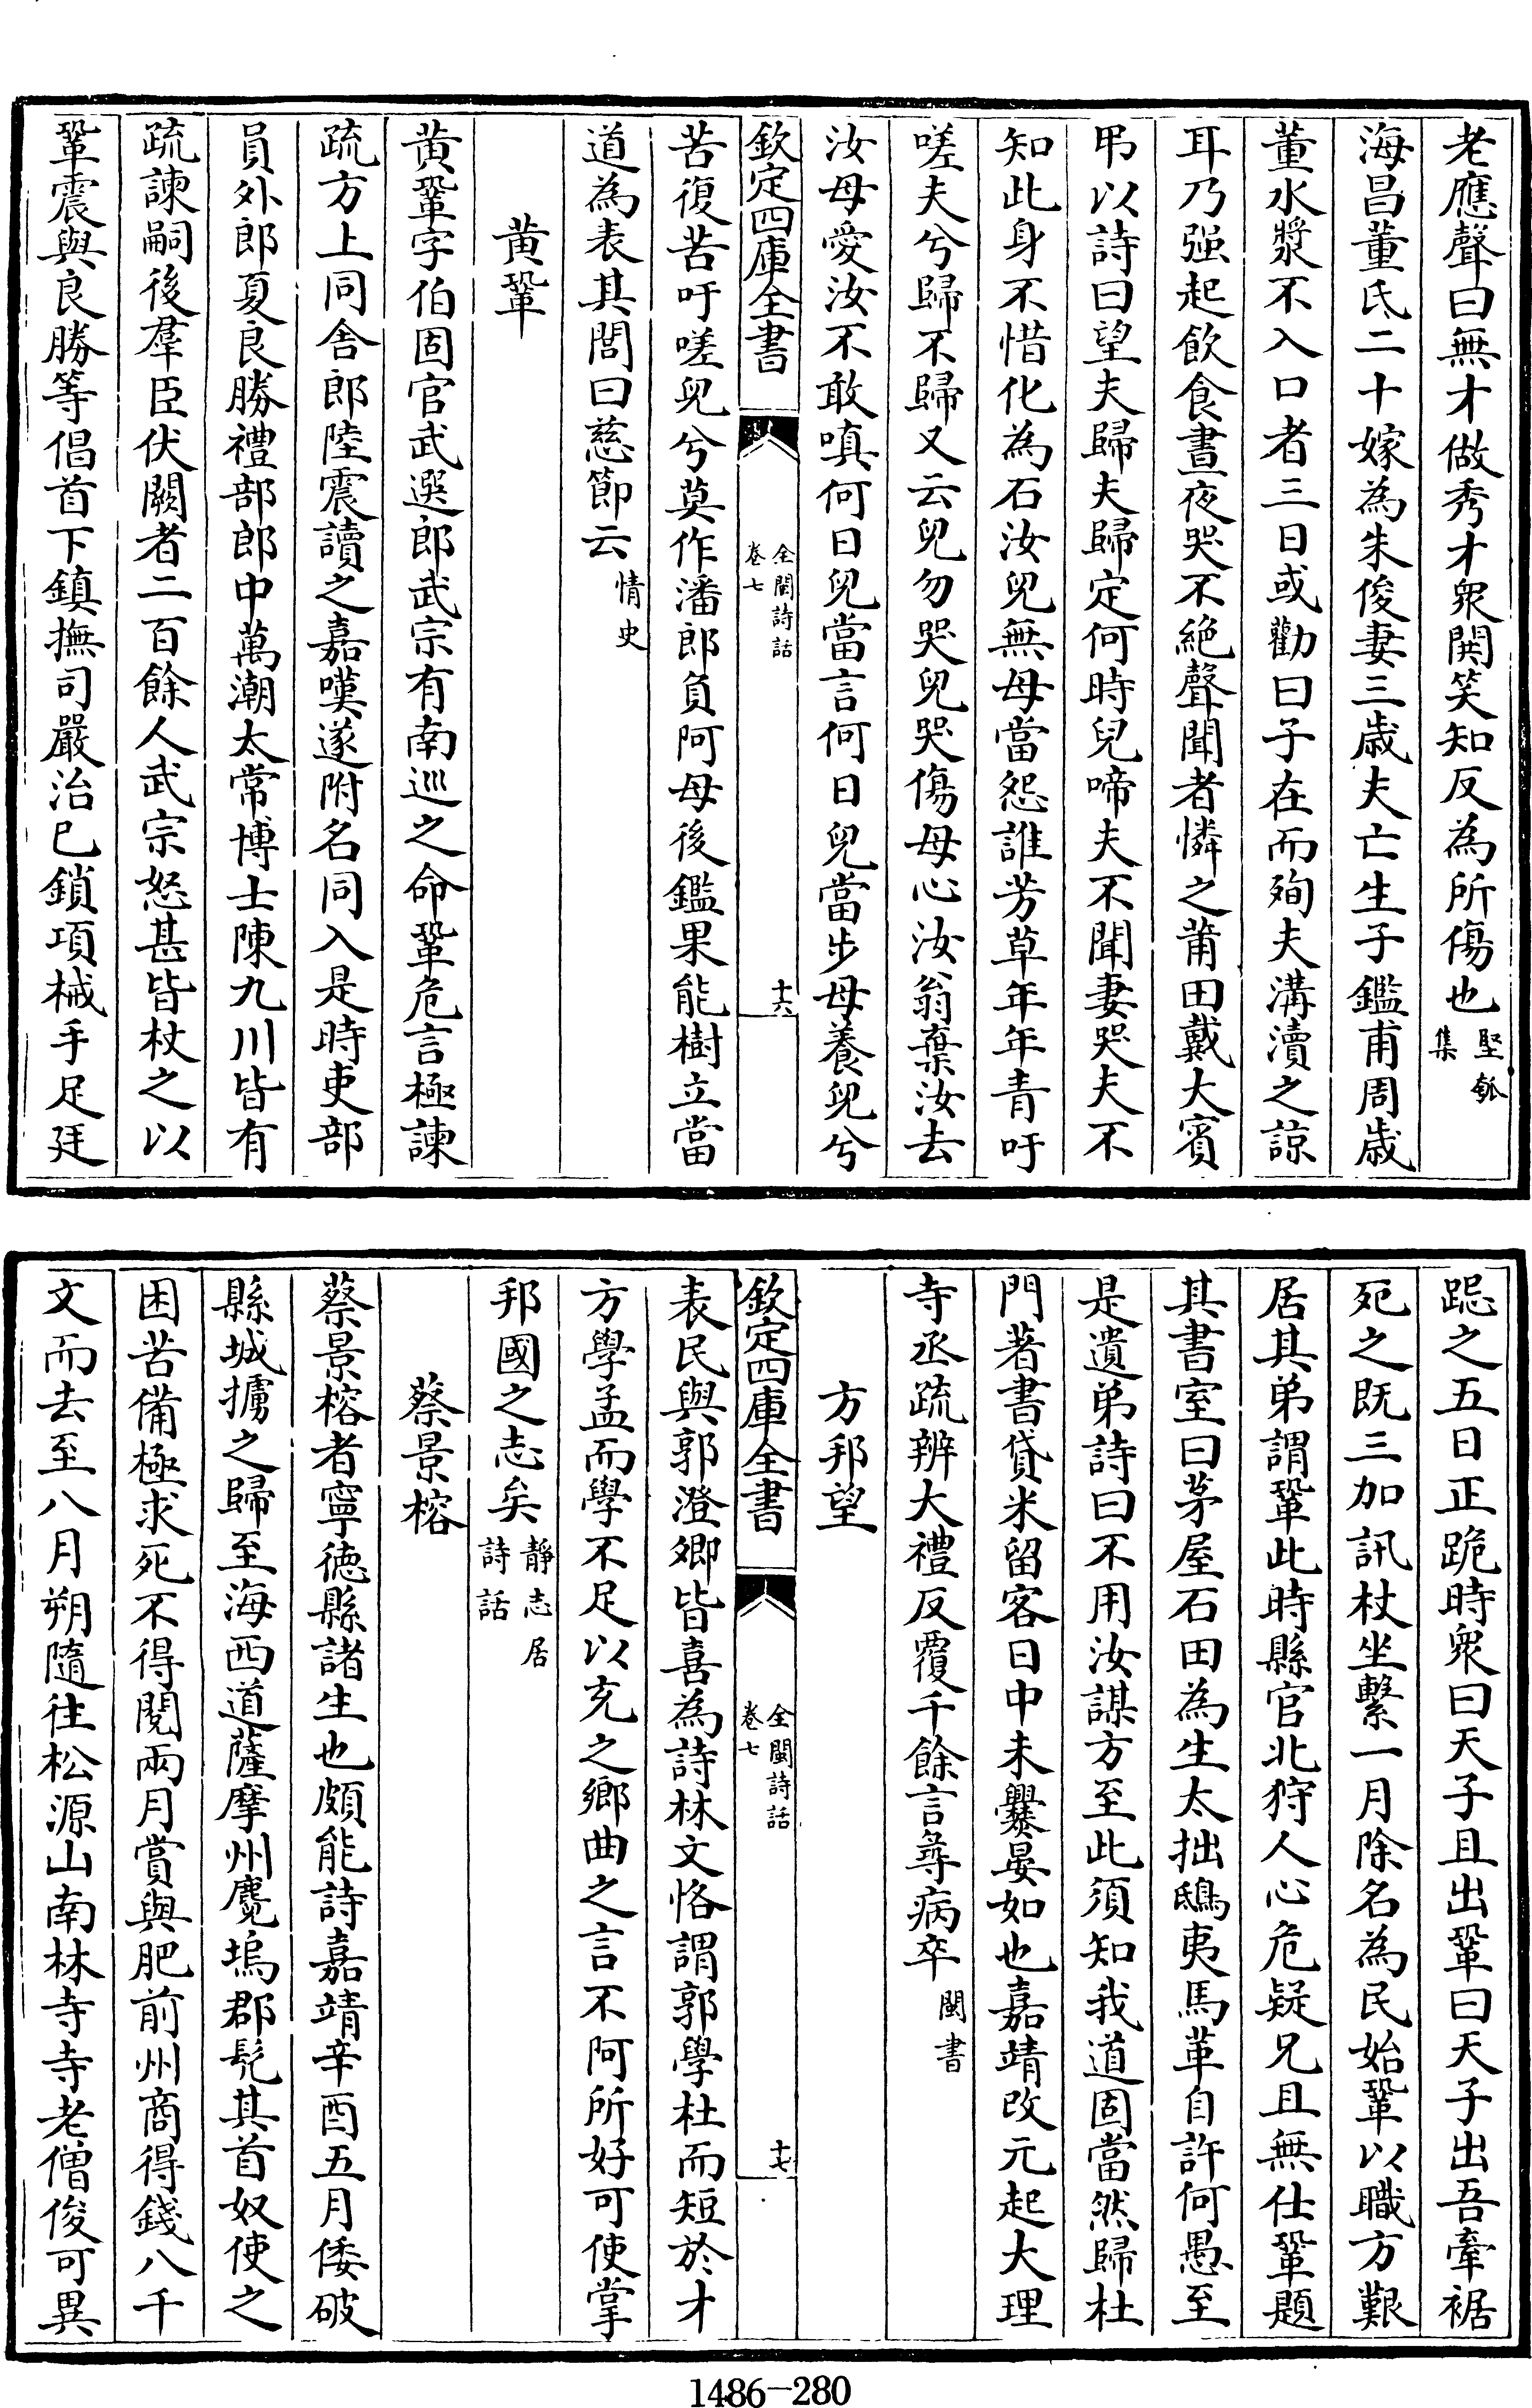 老應聲曰無才做秀才衆鬨笑知反為所傷也堅瓠集
海昌董氏二十嫁為朱俊妻三歲夫亡生子鑑甫周歲
董水漿不入口者三日或勸曰子在而殉夫溝瀆之諒
耳乃强起飲食晝夜哭不絶聲聞者憐之莆田戴大賓
弔以詩曰望夫歸夫歸定何時兒啼夫不聞妻哭夫不
知此身不惜化為石汝兒無母當怨誰芳草年年青吁
嗟夫兮歸不歸又云兒勿哭兒哭傷母心汝翁棄汝去
汝母愛汝不敢嗔何日兒當言何日兒當步母養兒兮
欽定四庫全書
全閩詩話
卷七
十六
苦復苦吁嗟兒兮莫作潘郎負阿母後鑑果能樹立當
道為表其閭曰慈節云情史
黄鞏
黄鞏字伯固官武選郎武宗有南巡之命鞏危言極諫
疏方上同舍郎陸震讀之嘉嘆遂附名同入是時吏部
員外郎夏良勝禮部郎中萬潮太常博士陳九川皆有
疏諫嗣後羣臣伏闕者二百餘人武宗怒甚皆杖之以
鞏震與良勝等倡首下鎮撫司嚴治已鎖項械手足廷
跽之五日正跪時衆曰天子且出鞏曰天子出吾牽裾
死之既三加訊杖坐繫一月除名為民始鞏以職方艱
居其弟謂鞏此時縣官北狩人心危疑兄且無仕鞏題
其書室曰茅屋石田為生太拙鴟夷馬革自許何愚至
是遺弟詩曰不用汝謀方至此須知我道固當然歸杜
門著書貸米留客日中未爨晏如也嘉靖改元起大理
寺丞疏辨大禮反覆千餘言尋病卒閩書
方邦望
欽定四庫全書
全閩詩話
卷七
十七
表民與郭澄卿皆喜為詩林文恪謂郭學杜而短於才
方學孟而學不足以充之鄉曲之言不阿所好可使掌
邦國之志矣静志居詩話
蔡景榕
蔡景榕者寧德縣諸生也頗能詩嘉靖辛酉五月倭破
縣城擄之歸至海西道薩摩州麑塢郡髡其首奴使之
困苦備極求死不得閱兩月賞與肥前州商得錢八千
文而去至八月朔隨往松源山南林寺寺老僧俊可異
1486-280